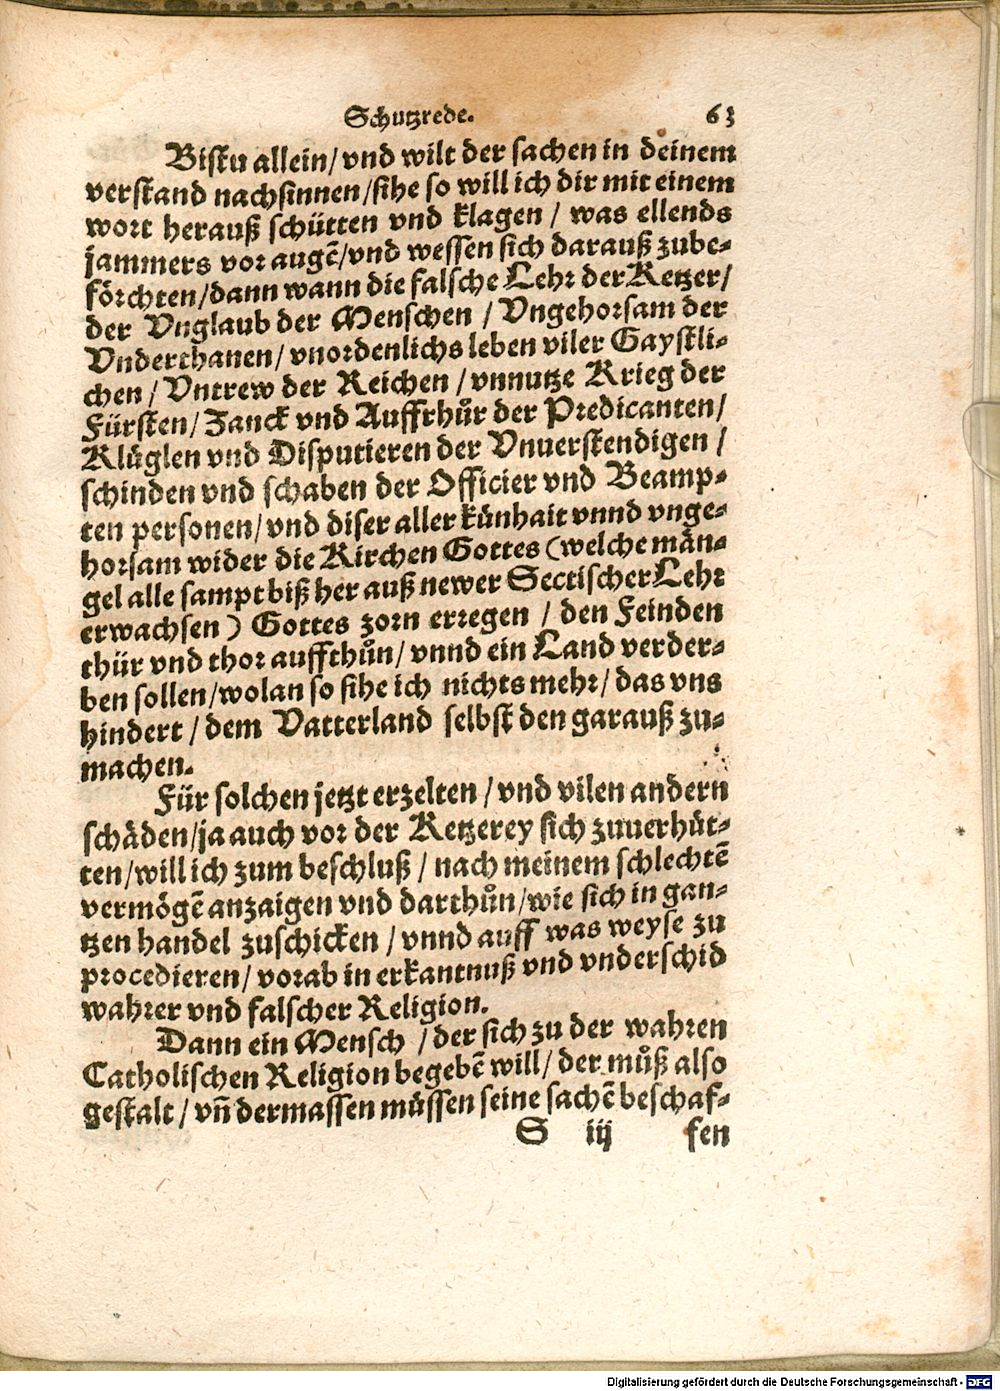 Schutzrede. 63
Bistu allein/vnd wilt der sachen in deinem
verstand nachsinnen/sihe so will ich dir mit einem
wort herauß schütten vnd klagen / was ellends
jammers vor augẽ/vnd wessen sich darauß zube-
förchten/dann wann die falsche Lehr der Ketzer/
der Vnglaub der Menschen / Vngehorsam der
Vnderthanen/vnordenlichs leben viler Gaystli-
chen / Vntrew der Reichen / vnnutze Krieg der
Fürsten/Zanck vnd Auffrhůr der Predicanten/
Klüglen vnd Disputieren der Vnuerstendigen /
schinden vnd schaben der Officier vnd Beamp-
ten personen/vnd diser aller künhait vnnd vnge-
horsam wider die Kirchen Gottes (welche män-
gel alle sampt biß her auß newer Sectischer Lehr
erwachsen) Gottes zorn erregen / den Feinden
thür vnd thor auffthůn/vnnd ein Land verder-
ben sollen/wolan so sihe ich nichts mehr/das vns
hindert / dem Vatterland selbst den garauß zu-
machen.
Für solchen jetzt erzelten / vnd vilen andern
schäden/ja auch vor der Ketzerey sich zuuerhüt-
ten/will ich zum beschluß / nach meinem schlechtẽ
vermögẽ anzaigen vnd darthůn/wie sich in gan-
tzen handel zuschicken / vnnd auff was weyse zu
procedieren/vorab in erkantnuß vnd vnderschid
wahrer vnd falscher Religion.
Dann ein Mensch / der sich zu der wahren
Catholischen Religion begebẽ will/der můß also
gestalt / vñ dermassen müssen seine sachẽ beschaf-
S iij fen
Digitalisierung gefördert durch die Deutsche Forschungsgemeinschaft - DFG